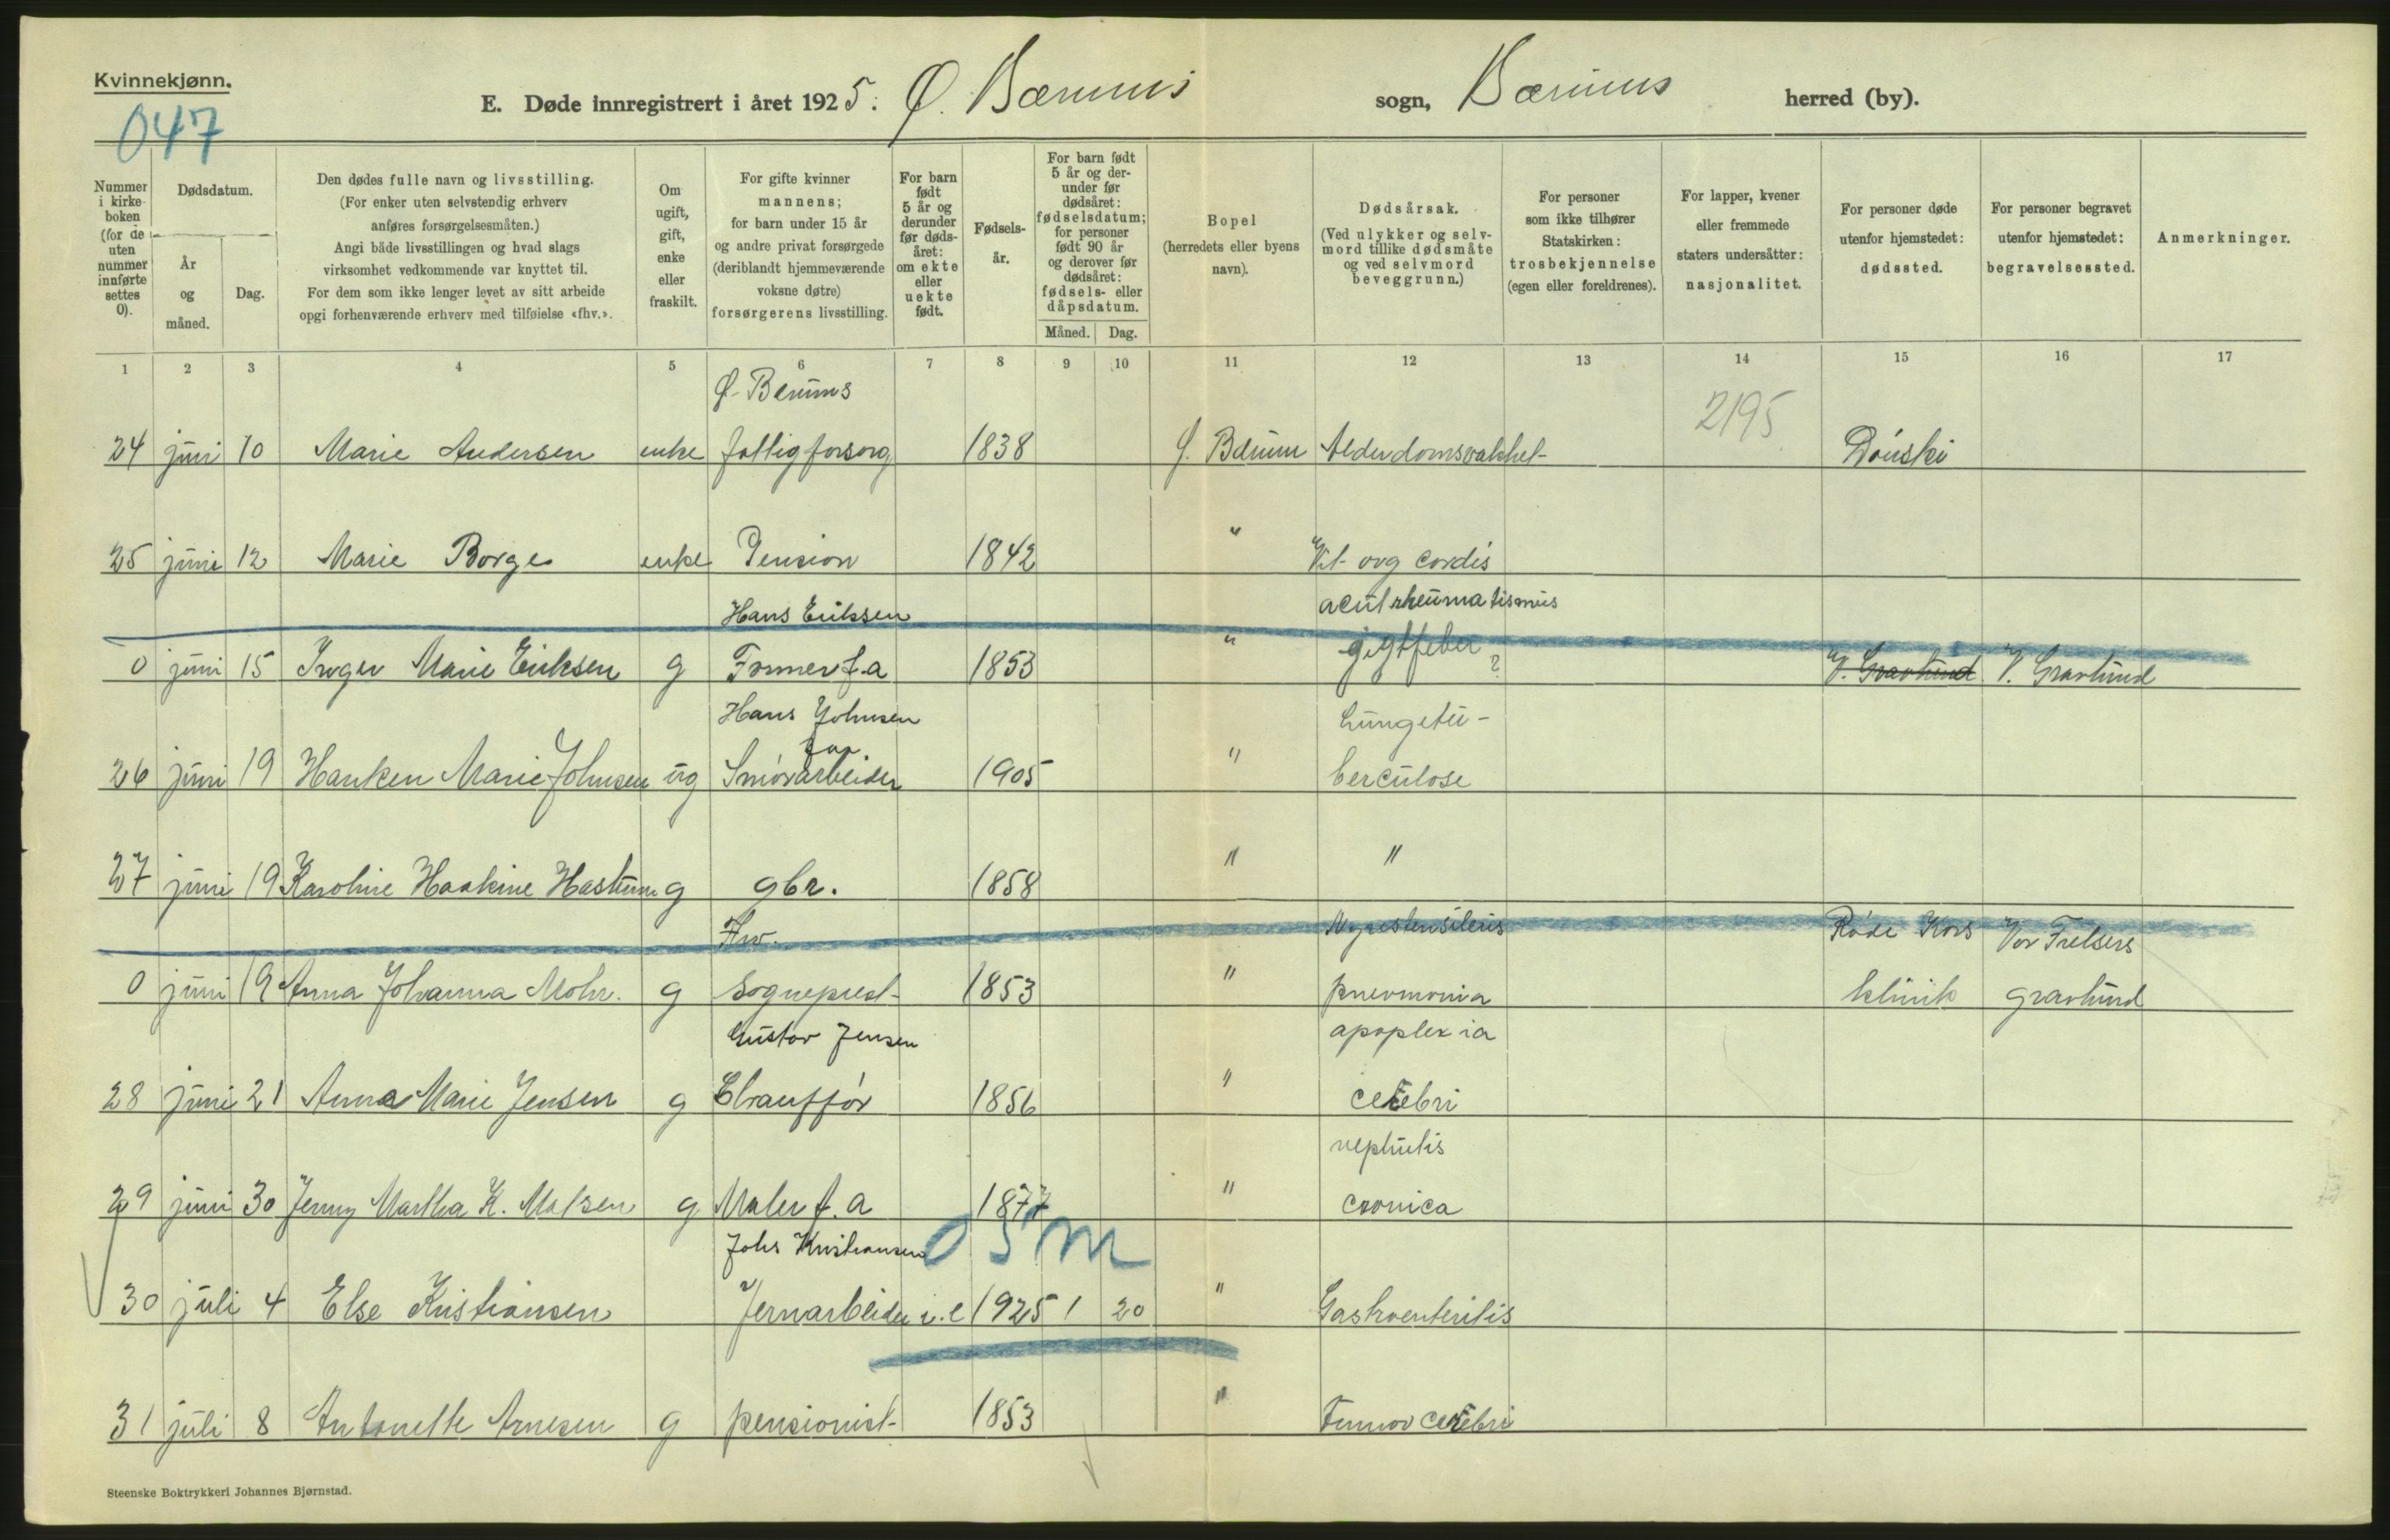 Kvinnekjønn.
E. Døde innregistrert i året 1925. Ø. Bærums sogn, Bærums herred (by).
047
Nummer i kirkeboken (for de uten nummer innførte settes 0).
Dødsdatum.
År og måned.
Dag.
Den dødes fulle navn og livsstilling.
(For enker uten selvstendig erhverv
anføres forsørgelsesmåten.)
Angi både livsstillingen og hvad slags
virksomhet vedkommende var knyttet til.
For dem som ikke lenger levet av sitt arbeide
opgi forhenværende erhverv med tilføielse «fhv.».
Om ugift, gift, enke eller fraskilt.
For gifte kvinner
mannens;
for barn under 15 år
og andre privat forsørgede
(deriblandt hjemmeværende
voksne døtre)
forsørgerens livsstilling.
For barn født 5 år og derunder før dødsåret: om ekte eller uekte født.
Fødselsår.
For barn født 5 år og derunder før dødsåret: fødselsdatum; for personer født 90 år og derover før dødsåret: fødsels- eller dåpsdatum.
Måned. Dag.
Bopel
(herredets eller byens
navn).
Dødsårsak.
(Ved ulykker og selv-
mord tillike dødsmåte
og ved selvmord
beveggrunn.)
For personer
som ikke tilhører
Statskirken:
trosbekjennelse
(egen eller foreldrenes).
For lapper, kvener
eller fremmede
staters undersåtter:
nasjonalitet.
For personer døde
utenfor hjemstedet:
dødssted.
For personer begravet
utenfor hjemstedet:
begravelsessted.
Anmerkninger.
1 2 3 4 5 6 7 8 9 10 11 12 13 14 15 16 17
Ø. Berums
2195
24 juni 10 Marie Andersen enke fattigforsorg 1838 Ø. Bærum Alderdomsvakhet
25 juni 12 Marie Borge enke Pension 1842 " Vit. org cordis
Hans Eriksen acut rheumatismus
0 juni 15 Inger Marie Eriksen g Tømmerf.a 1853 " gigtfeber ? V. Gravlund V. Gravlund
Hans Johnsen Lungetu-
fap.
26 juni 19 Hanken Marie Johnsen ug Smörarbeider 1905 " berculose
27 juni 19 Karoline Haakine Haslum g gbr. 1858 " "
Fhv. Röde Kors Vor Frelsers
0 juni 19 Anna Johanna Mohr. g sogneprest 1853 " pneumonia klinik gravlund
Gustav Jensen apoplexia
28 juni 21 Anna Marie Jensen g Chauffør 1856 " cerebri
nephritis
29 juni 30 Jenny Martha K. Matsen g Maler f.a 1877 " cronica
Johs Kristiansen 0 5 m
30 juli 4 Else Kristiansen Jernarbeider i.e 1925 1 20 " Gastroenteritis
31 juli 8 Antonette Arnesen g pensionist 1853 " Tumor cerebri
Steenske Boktrykkeri Johannes Bjørnstad.